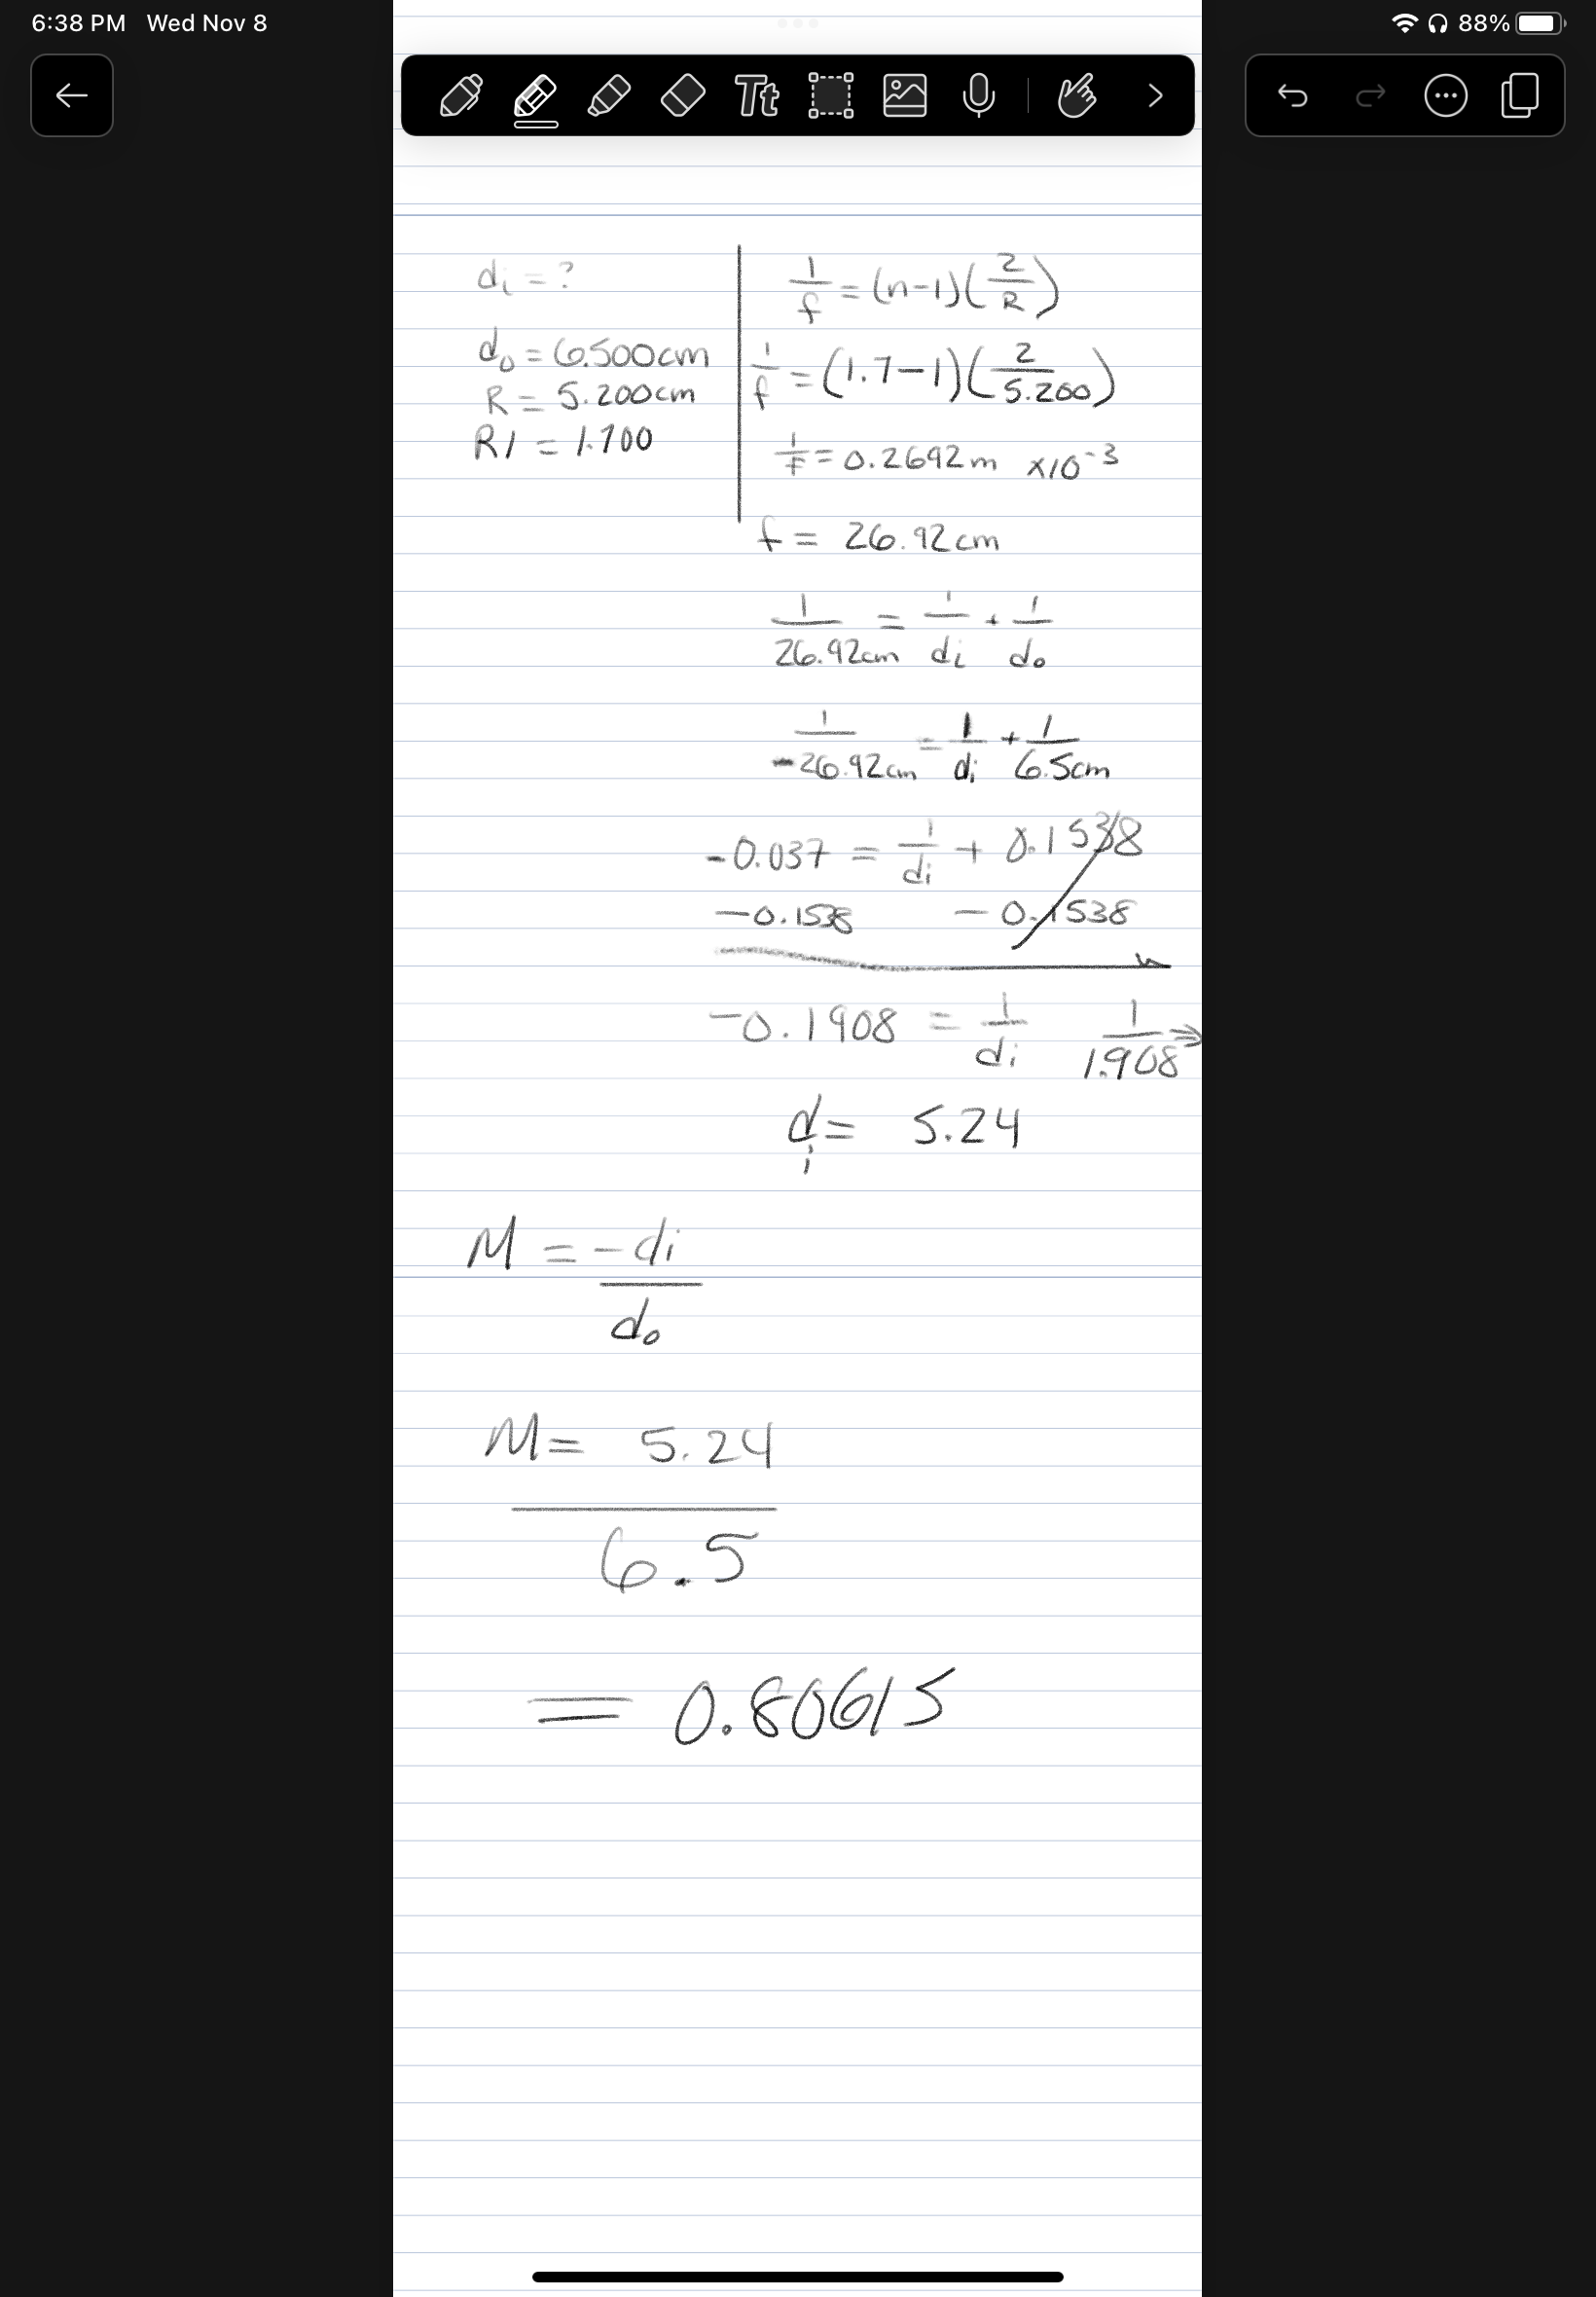 6:38 PM Wed Nov 8
88%
Tt
di = ?
do = 6.500cm
R = 5.200cm
RI = 1.700
1/f = (n-1)(2/R)
1/f = (1.7-1)(2/5.200)
1/f = 0.2692m x10^-3
f = 26.92cm
1/26.92cm = 1/di + 1/do
1/-26.92cm = 1/di + 1/6.5cm
-0.037 = 1/di + 0.1538
-0.1538 -0.1538
-0.1908 = 1/di 1/1.908 →
di = 5.24
M = -di/do
M = 5.24/6.5
= 0.80615